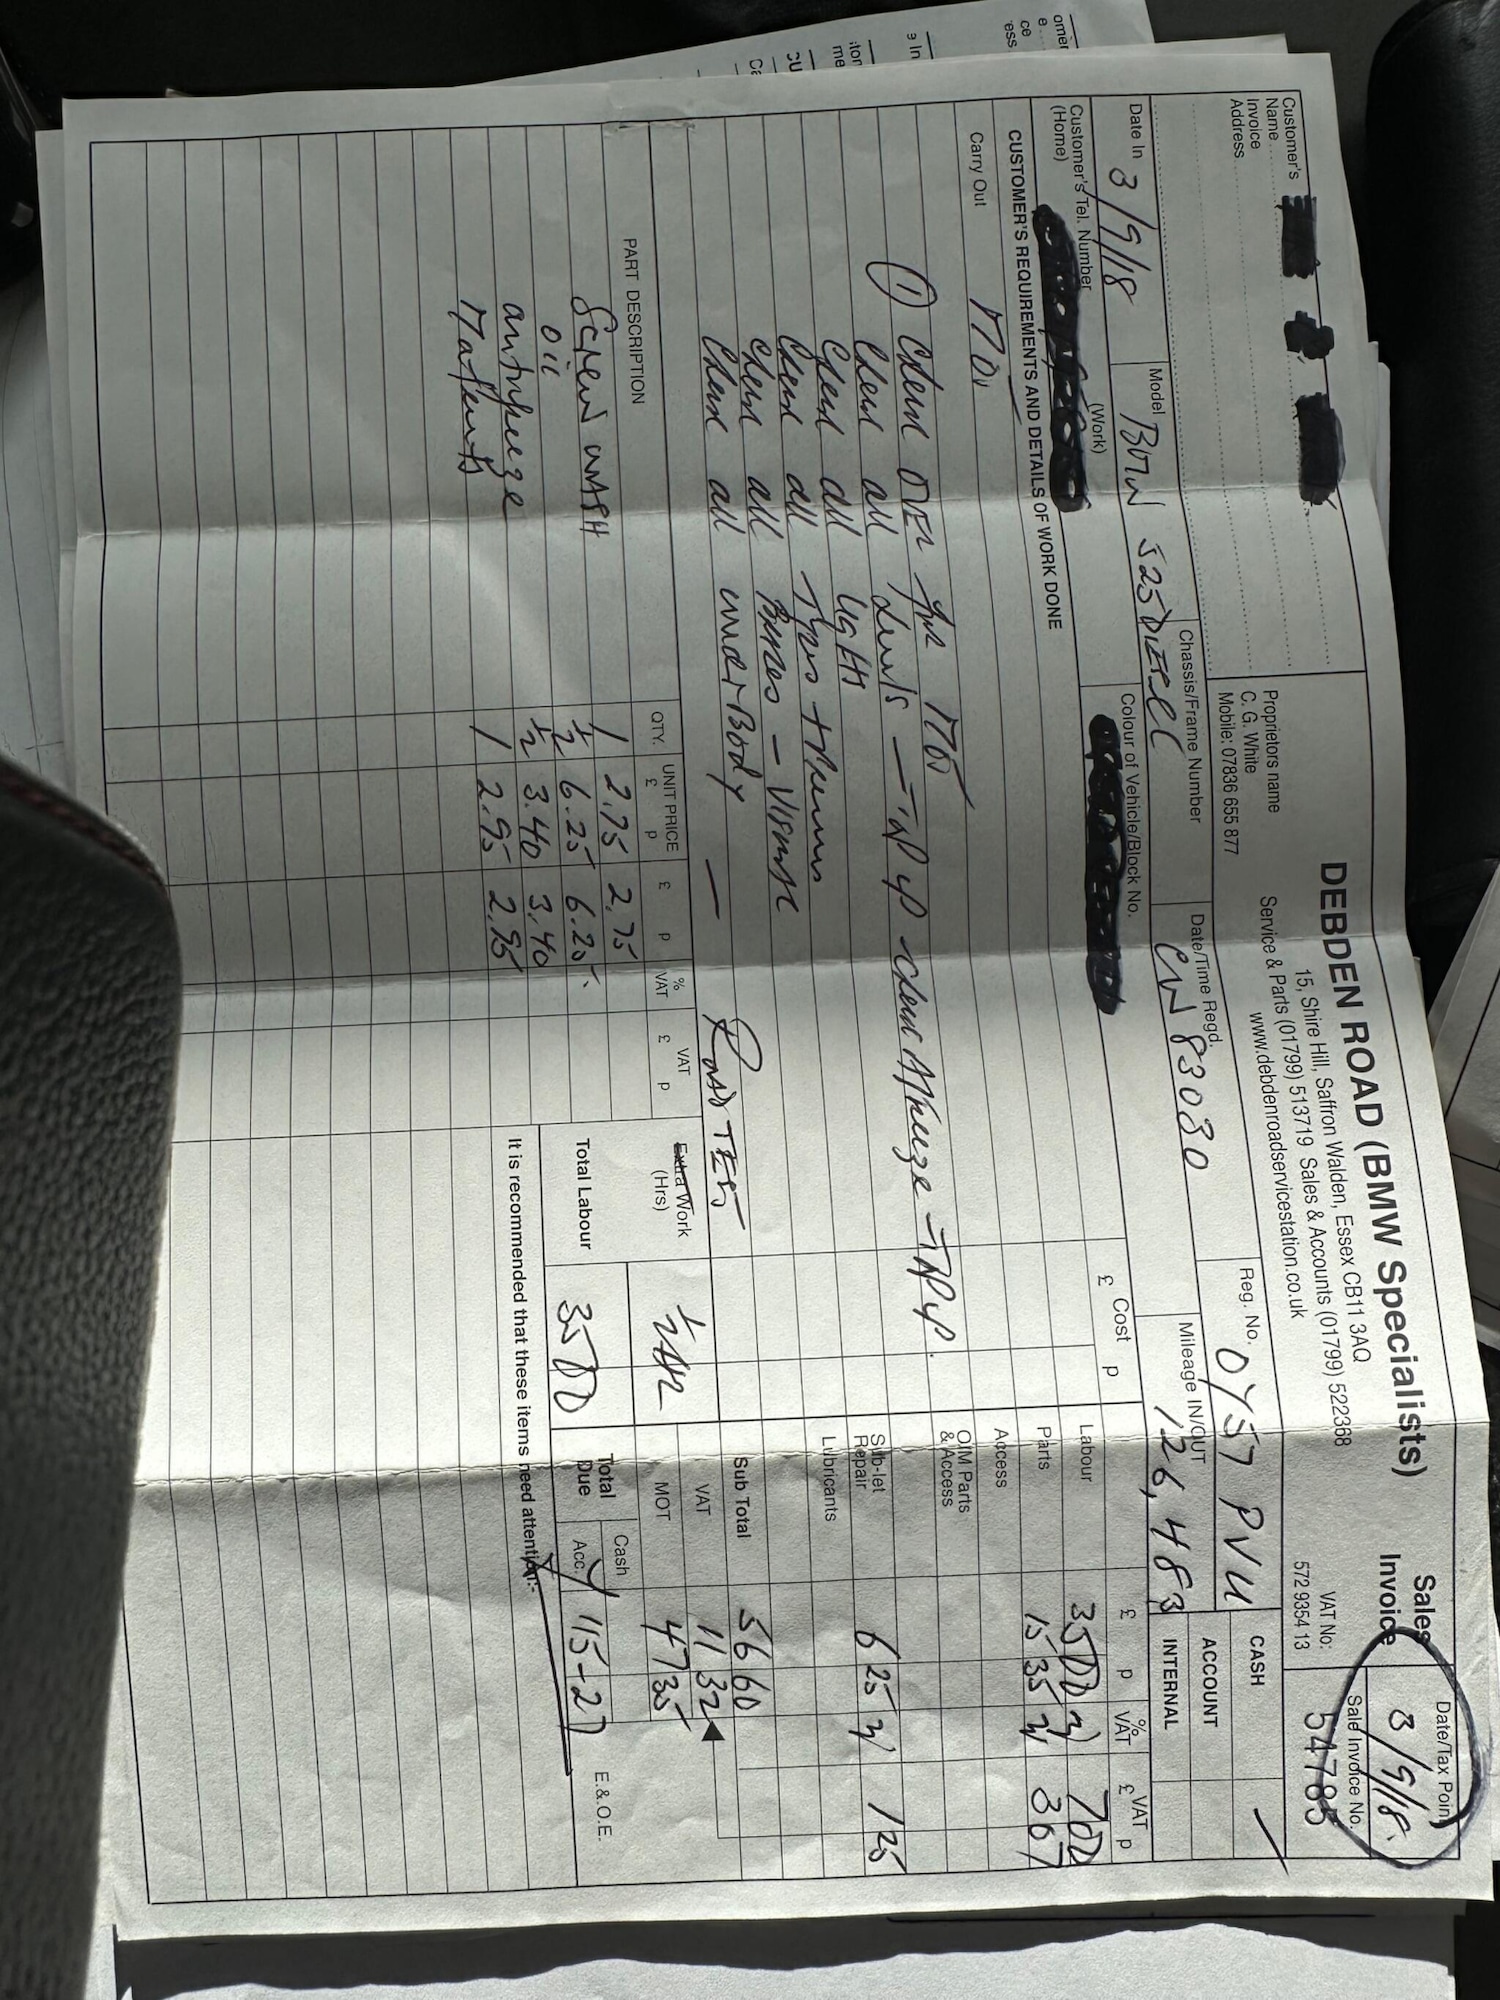 DEBDEN ROAD (BMW Specialists)
15, Shire Hill, Saffron Walden, Essex CB11 3AQ
Service & Parts (01799) 513719 Sales & Accounts (01799) 522368
www.debdenroadservicestation.co.uk
Proprietors name
C. G. White
Mobile: 07836 655 877
Sales
Invoice
VAT No:
572 9354 13
Date/Tax Point
3/9/18.
Sale Invoice No.
54785
Customer's
Name
Invoice
Address
Reg. No. OY57 PVU
CASH
ACCOUNT
INTERNAL
Date In 3/9/18
Model BMW 525 DIESEL
Chassis/Frame Number
Date/Time Regd.
CW 83080
Mileage IN/OUT
126,483
Customer's Tel. Number
(Home)
(Work)
Colour of Vehicle/Block No.
CUSTOMER'S REQUIREMENTS AND DETAILS OF WORK DONE
Cost
£ p
£ p % VAT £ VAT p
Carry Out MOT
① Check OVER for MOT
Check all Levels - Top up Check Antifreeze - Top up.
Check all Lights
Check all Tyres + Trims
Check all Pipes - Visual
Check all underBody — Road TEST
Labour 35 00 7 00
Parts 15 35 3 07
Access
O/M Parts
& Access
Sub-let
Repair 6 25 1 25
Lubricants
Sub Total 56 60
VAT 11 32
MOT 47 35
Total
Due
Cash
Acc. 115-27
E.&.O.E.
PART DESCRIPTION QTY. UNIT PRICE £ p £ p % VAT VAT £ p
Screen WASH 1 2.75 2.75
OIL ½ 6.25 6.25
antifreeze ½ 3.40 3.40
Materials 1 2.95 2.95
Extra Work
(Hrs) ½ HR
Total Labour 35 00
It is recommended that these items need attention:-